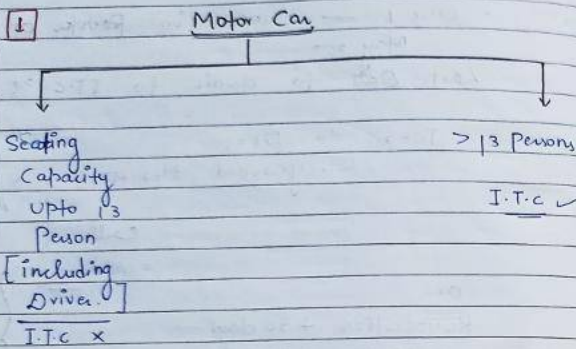 1
Motor Car
Seating
Capacity
upto 13
Person
[including
Driver.]
I.T.C ×
> 13 Persons
I.T.C ✓